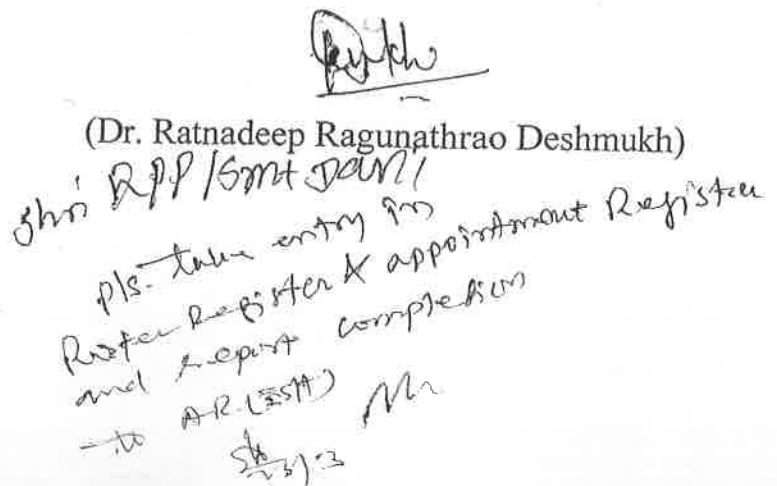 (Dr. Ratnadeep Ragunathrao Deshmukh)
Shri RPP/Smt Dani
pls. take entry in
Roster Register & appointment Register
and report completion
to A.R.(Estt)